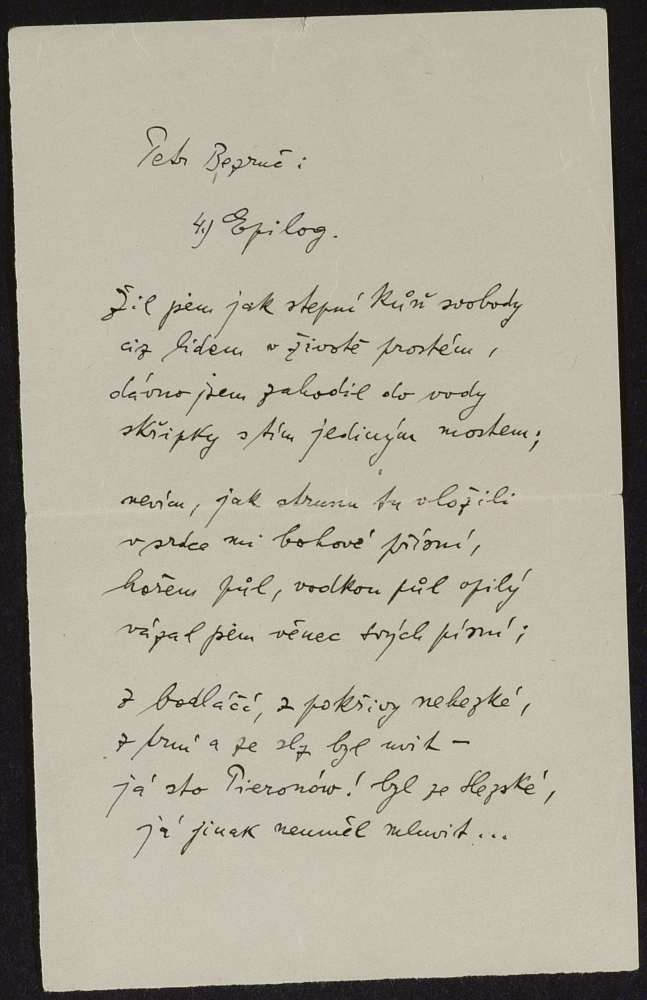 Petr Bezruč:
4.) Epilog.
Žil jsem jak stepní kůň svobody
ciz lidem v životě prostém,
dávno jsem zahodil do vody
skřipky s tím jediným mostem;
nevím, jak strunu tu vložili
v srdce mi bohové přísní,
hořem půl, vodkou půl opilý
vázal jsem věnec svých písní;
z bodláčí, z pokřivy nehezké,
z trní a ze slz byl uvit –
já sto Pieronów! byl ze Slezské,
já jinak neuměl mluvit...